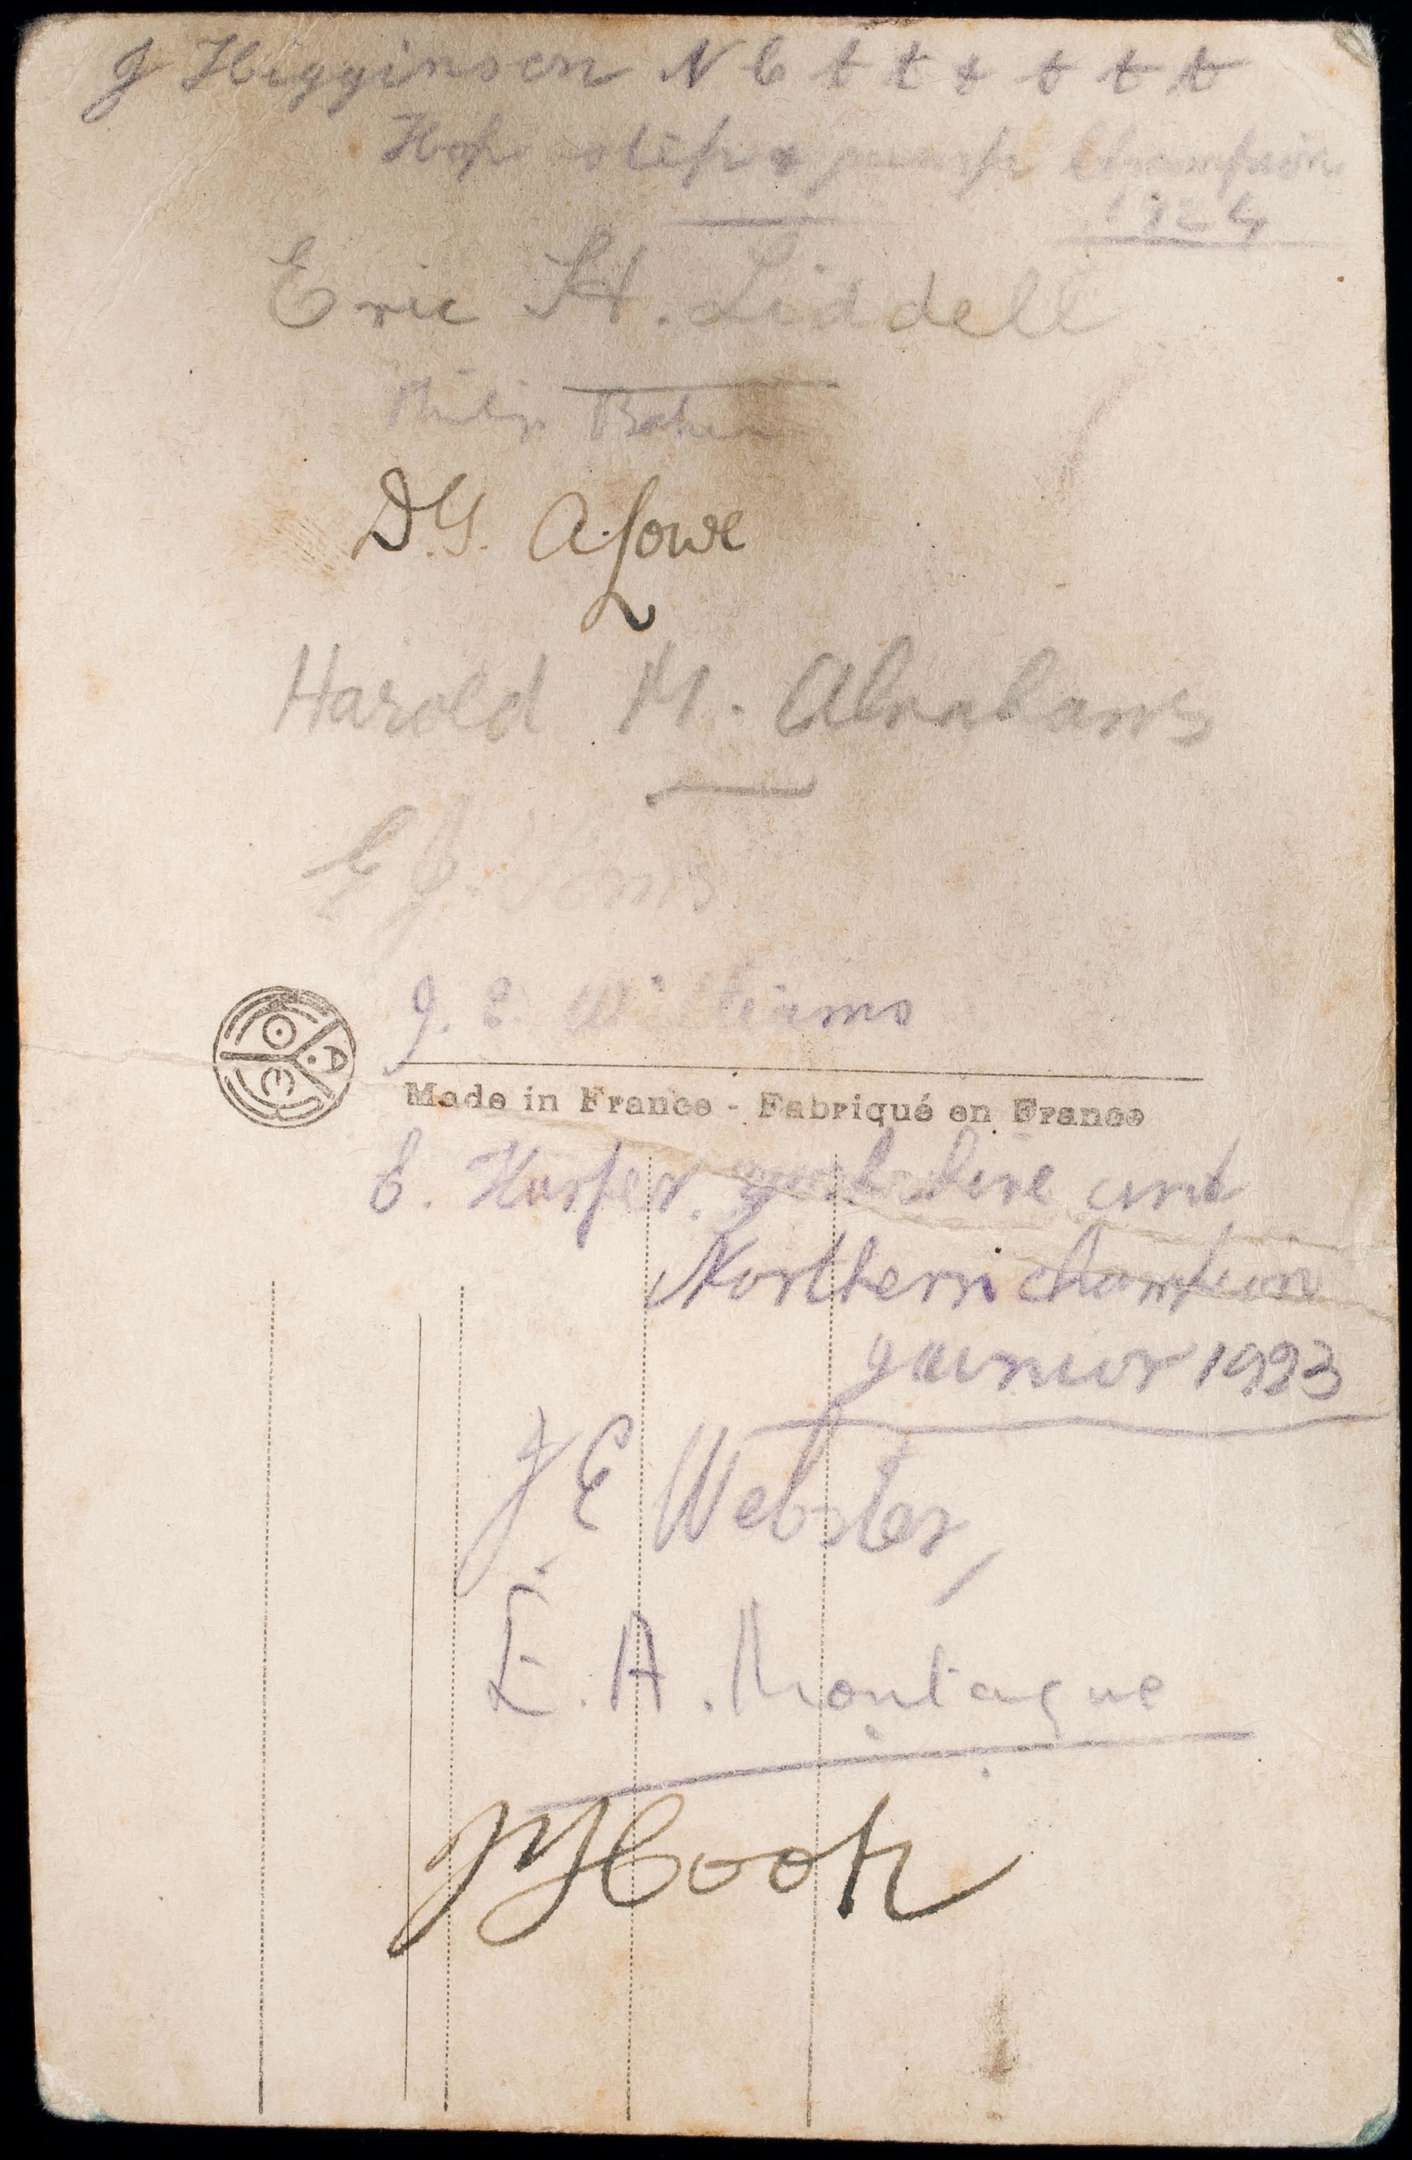 J Higginson N C t t t t t t
Hop step & jump Champion
1924
Eric H. Liddell
Philip Baker
D.G. A. Lowe
Harold M. Abrahams
J. E. Williams
Made in France - Fabriqué en France
E. Harper. yorkshire and
Northern champion
juinior 1923
J E Webster,
E. A. Montague
Cook